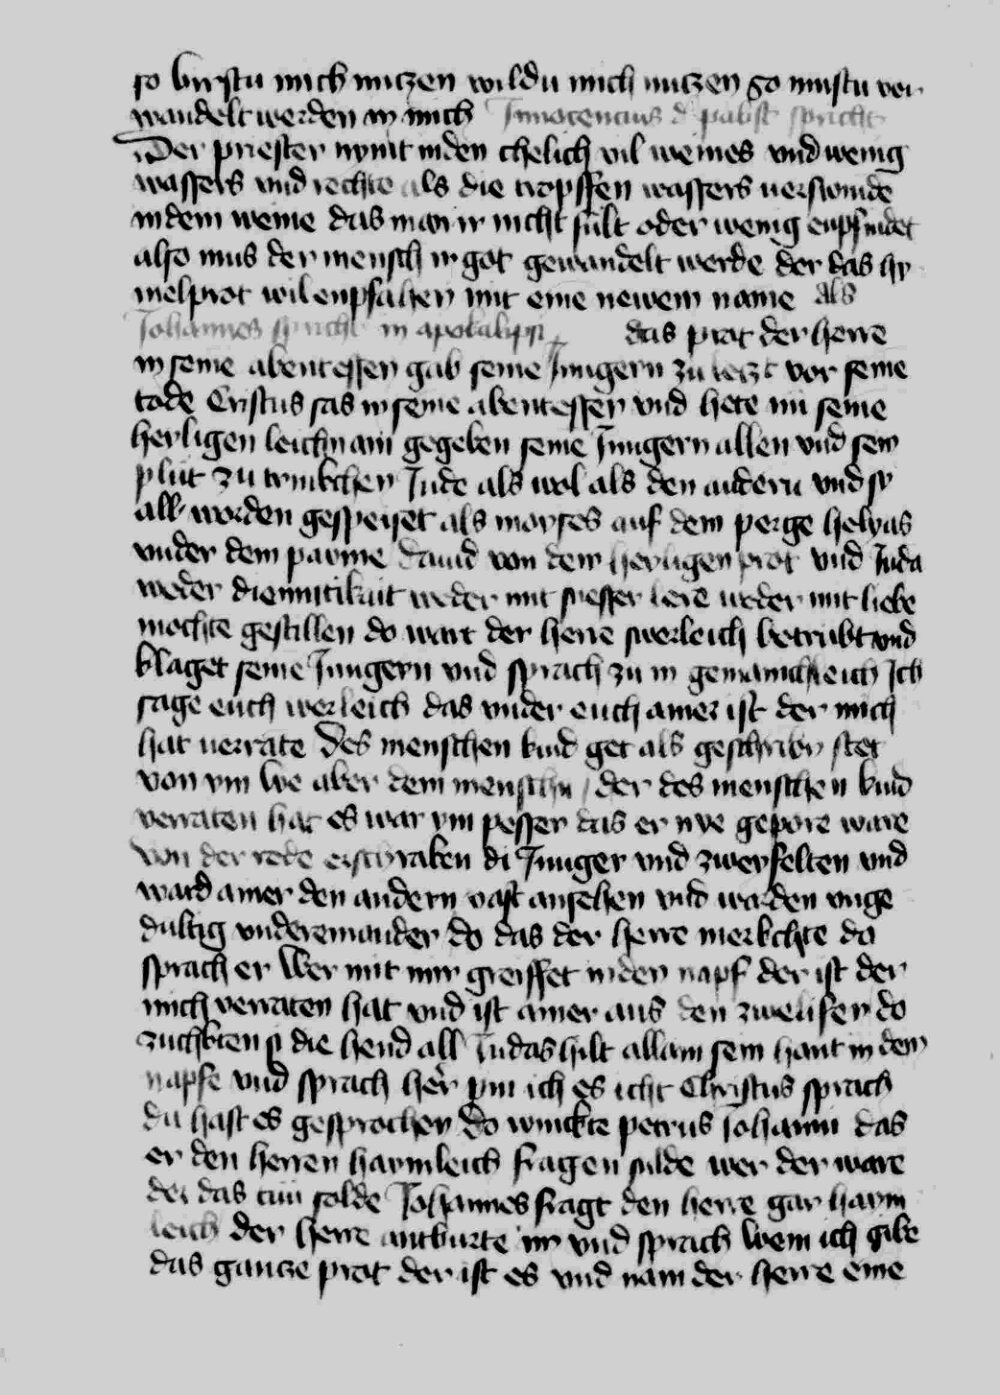 so birstu mich nuczen wildu mich nuczen so mustu ver
wandelt werden in mich Innocencius d pabst spricht
Der priester nymt inden chelich vil weines vnd wenig
wassers vnd rechte als die tropffen wassers uerswinde
indem weine das man ir nicht fult oder wenig enpfindet
also mus der mensch in got gewandelt werde der das hy
melprot wil enpfahen mit eine newem name als
Johannes spricht in apokalipsi das prot der herre
in seine abentessen gab seine Jungern zu leczt vor seine
tode Cristus sas in seine abentessen vnd hete nu seine
heyligen leichnam gegeben seine Jungern allen vnd sein
plut zu trinkchen Jude als wol als den andern vnd sy
all worden gespeiset als moyses auf dem perge helyas
vnder dem pawme dauid von dem heyligen prot vnd Juda
weder diemutikait weder mit susser lere weder mit liebe
mochte gestillen do wart der herre swerleich betrubt vnd
klaget seine Jungern vnd sprach zu in gemainchleich Ich
sage euch werleich das vnder euch ainer ist der mich
hat uerrate Des menschen kind get als geschriben stet
von ym we aber dem menschn der des menschen kind
verraten hat es war ym pesser das er nye gepore ware
von der rede erschraken di Junger vnd zweyfelten vnd
ward ainer den andern vast ansehen vnd warden vnge
dultig vndereinander do das der herre merkchte do
sprach er Wer mit mir greiffet inden napf der ist der
mich verraten hat vnd ist ainer aus den zwelifen do
zuchkten si die hend all Judas hilt allain sein hant in dem
napfe vnd sprach her pin ich es icht Christus sprach
du hast es gesprochen do winckte petrus Johanni das
er den herren haimleich fragen solde wer der ware
der das tun solde Johannes fragt den herre gar haim
leich der herre antburte im vnd sprach wem ich gibe
das gancze prot der ist es vnd nam der herre eine